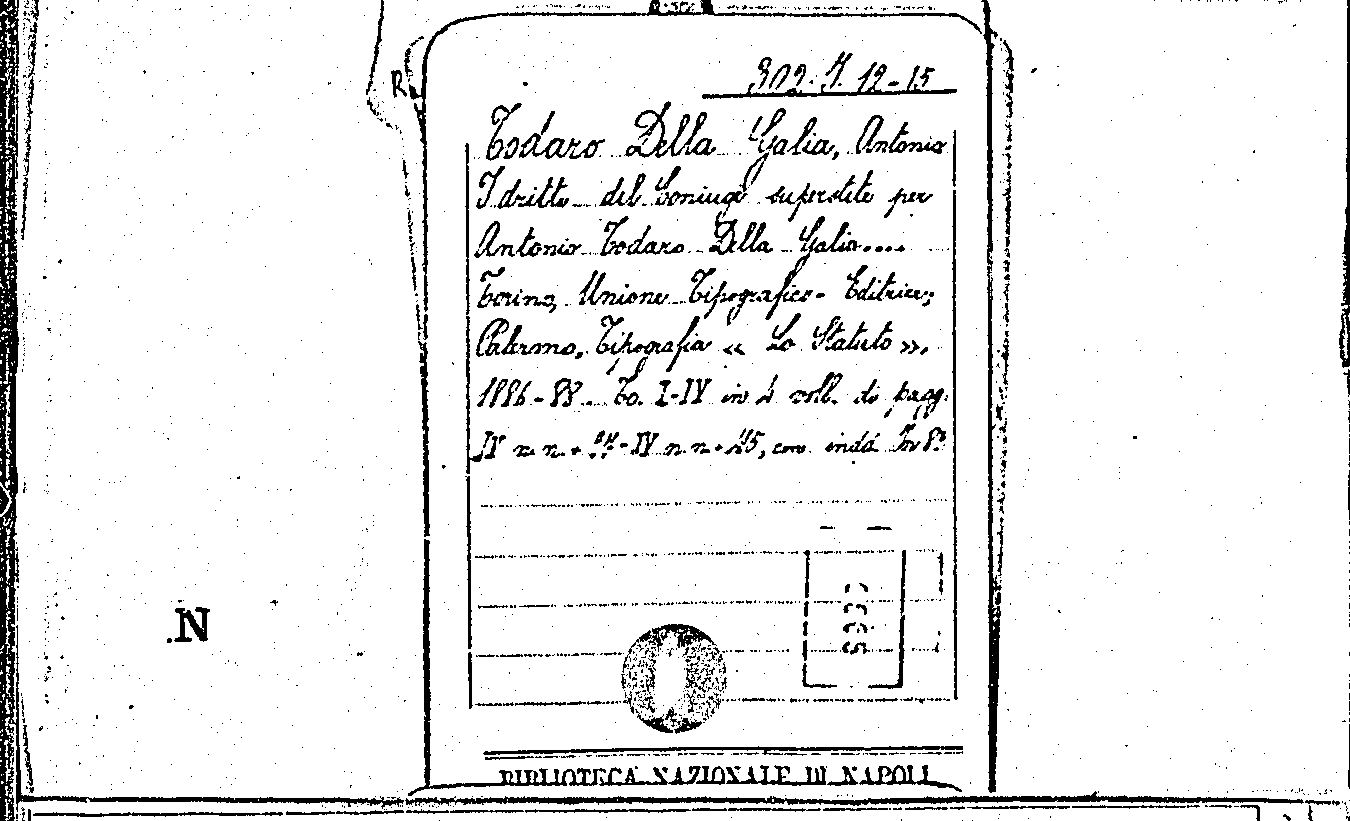 302. J. 12-15
Todaro Della Galia, Antonio
I dritti del Coniuge superstite per
Antonio Todaro Della Galia....
Torino, Unione Tipografico-Editrice;
Palermo, Tipografia « Lo Statuto ».
1886-88. To. I-IV in 4 voll. di pagg.
IV n. n. + IV n. n. +
N
BIBLIOTECA NAZIONALE DI NAPOLI